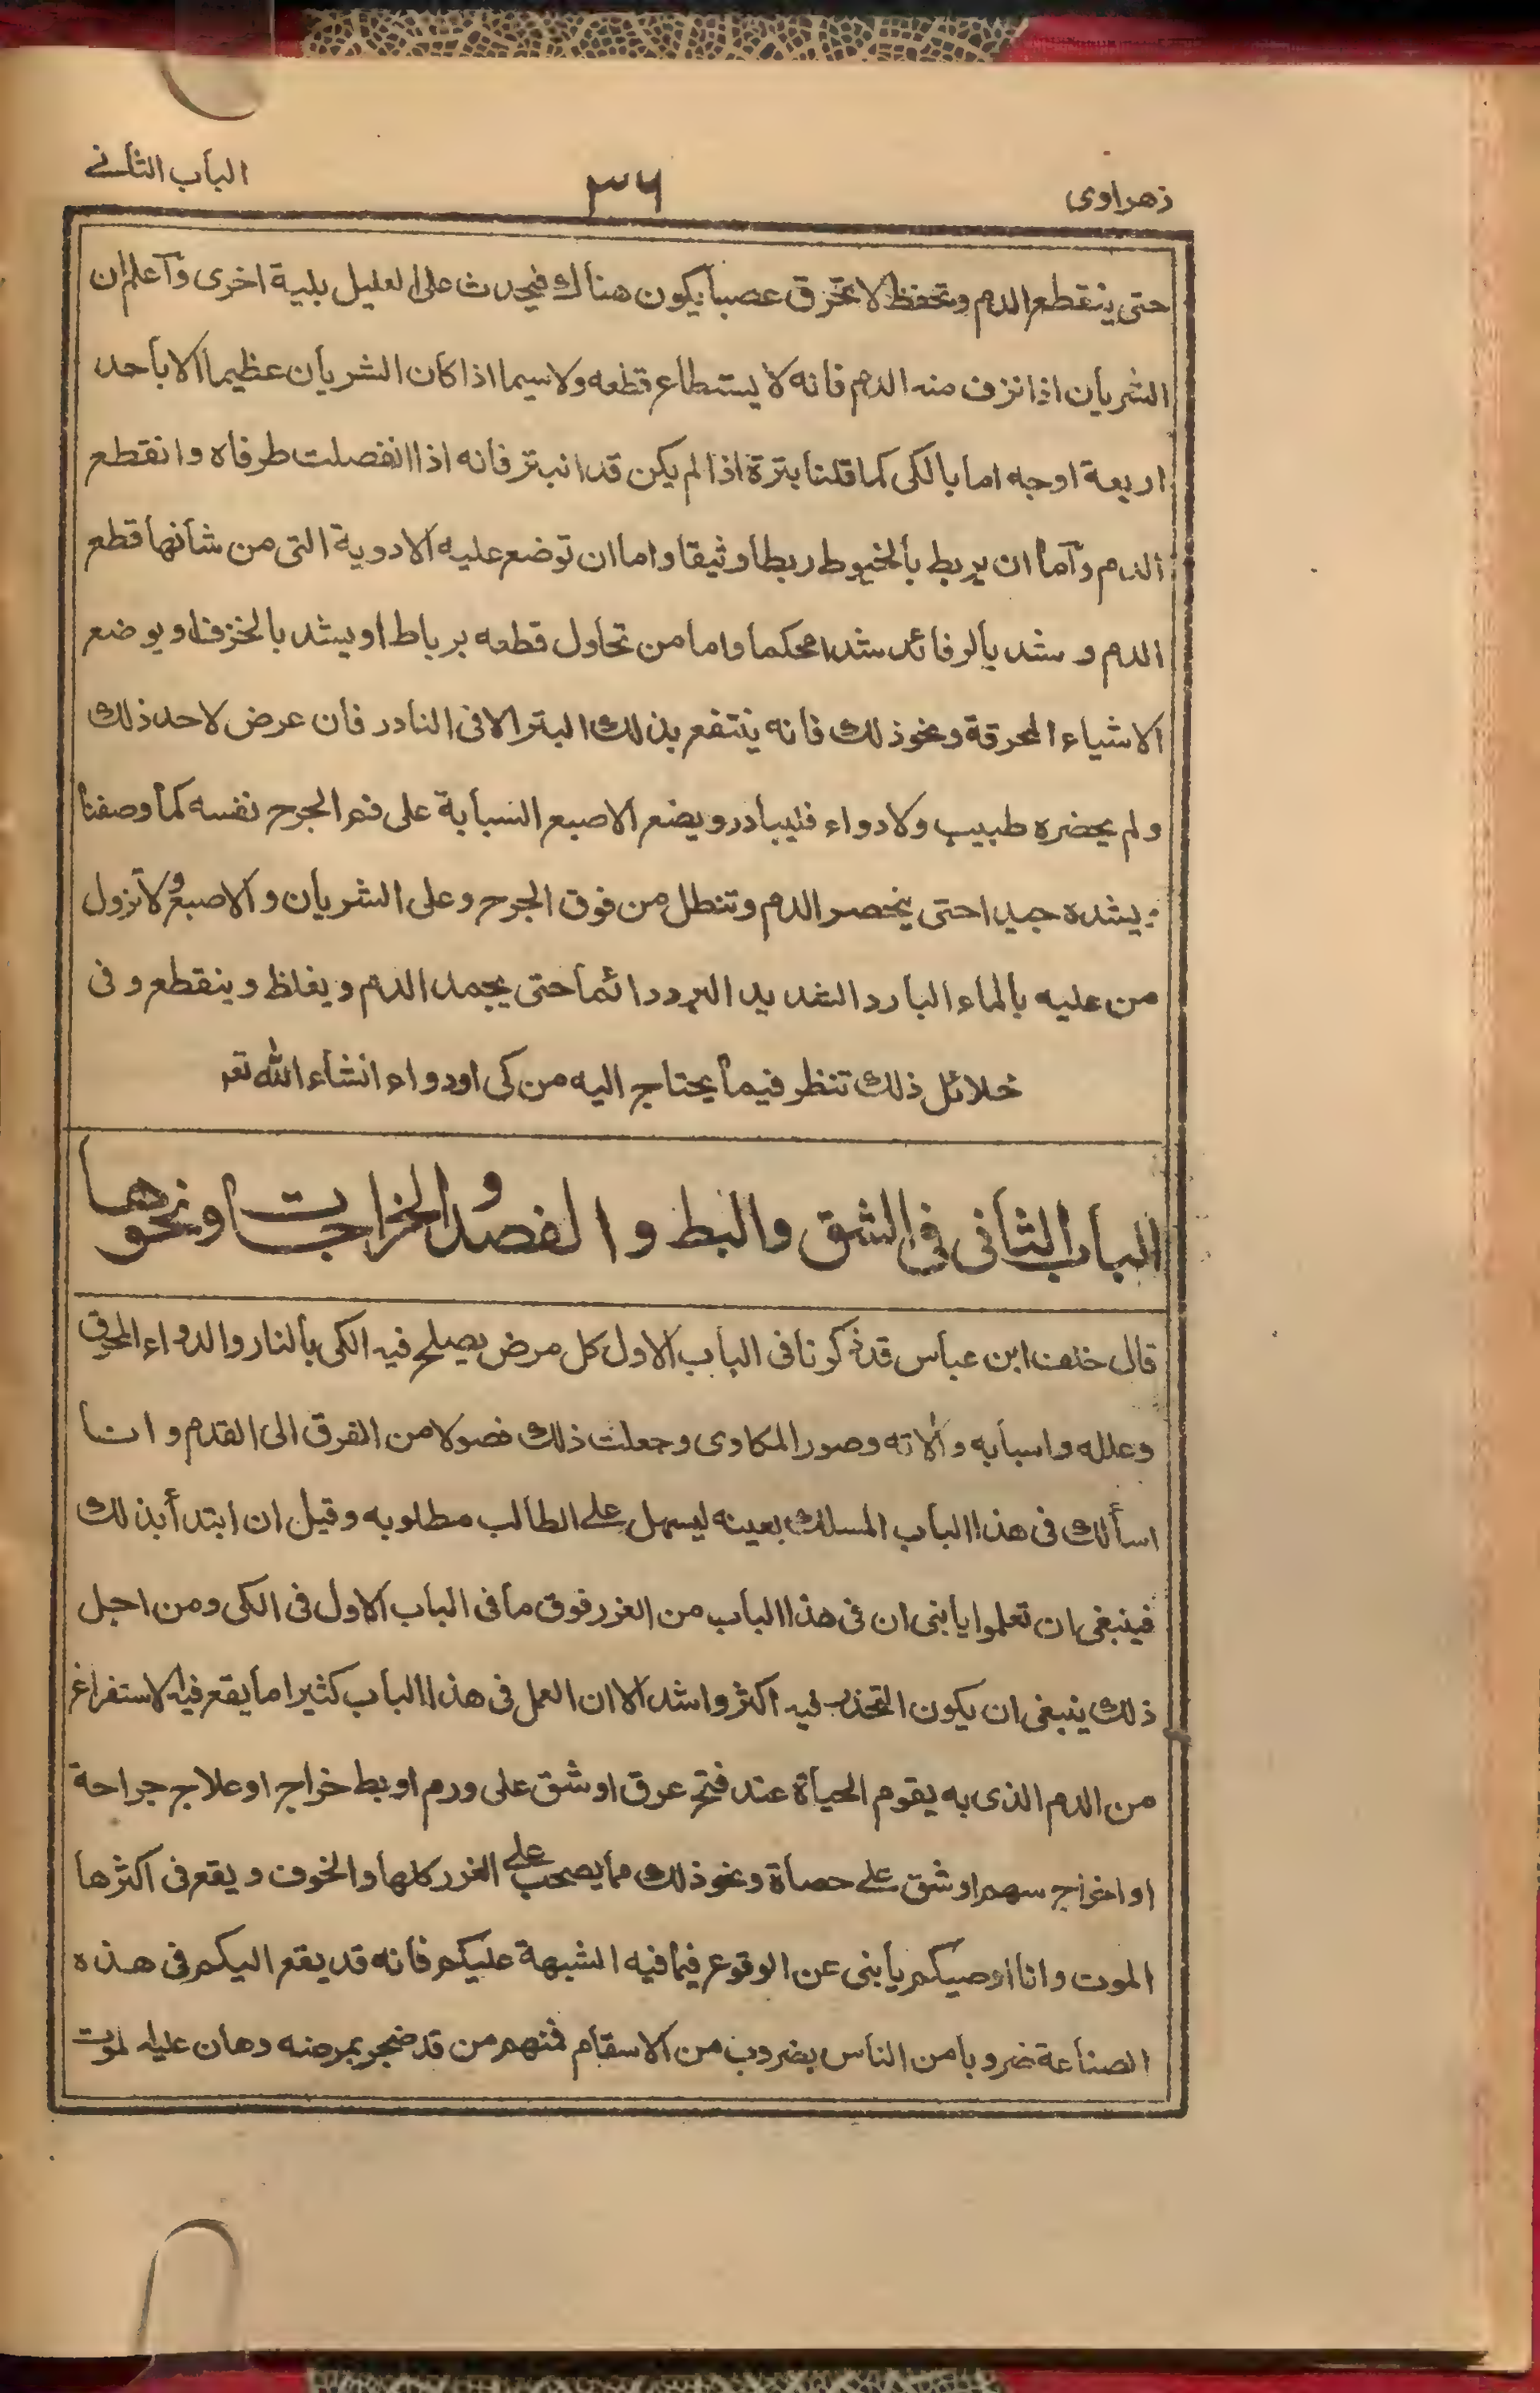 زهراوى
٣٦
الباب الثانے
حتى ينقطع الدم وتحفظ لا تحرق عصبا يكون هناك فيحدث على العليل بلية اخرى وآعلم ان
الشريان اذا نزف منه الدم فانه لا يستطاع قطعه ولاسيما اذا كان الشريان عظيما الا باحد
اربعة اوجه اما بالكى كما قلنا بترة اذا لم يكن قد انبتر فانه اذا انفصلت طرفاه وانقطع
الدم وآما ان يربط بالخيوط ربطا وثيقا واما ان توضع عليه الادوية التى من شانها قطع
الدم و شد بالرفائد شدا محكما واما من تحاول قطعه برباط او يشد بالخزف او يوضع
الاشياء المحرقة ونحو ذلك فانه ينتفع بذلك البتر الا فى النادر فان عرض لاحد ذلك
ولم يحضره طبيب ولا دواء فليبادر ويضع الاصبع السبابة على فم الجرح نفسه كما وصفنا
يشده جيدا حتى ينحصر الدم وتنطل من فوق الجرح وعلى الشريان والاصبع ولا تزول
من عليه بالماء البارد الشديد البرد دائما حتى يجمد الدم ويغلظ وينقطع وفى
خلائل ذلك تنظر فيما يحتاج اليه من كى او دواء انشاء الله تعـ
الباب الثانى فى الشق والبط والفصد و الخراجات ونحوهـا
قال خلف ابن عباس قد ذكرنا فى الباب الاول كل مرض يصلح فيه الكى بالنار والدواء المحرق
وعلله واسبابه وآلاته وصور المكاوى وجعلت ذلك فصولا من الفرق الى القدم وانا
اسألك فى هذا الباب المسلك بعينه ليسهل علے الطالب مطلوبه وقيل ان ابتدأ بذلك
فينبغى ان تعلموا يا بنى ان فى هذا الباب من الغرر فوق ما فى الباب الاول فى الكى ومن اجل
ذلك ينبغى ان يكون التحذر فيه اكثر واشد الا ان العمل فى هذا الباب كثيرا ما يقع فيه الاستفراغ
من الدم الذى به يقوم الحياة عند فتح عرق او شق على ورم او بط خراج او علاج جراحة
او اخراج سهم او شق علے حصاة ونحو ذلك مما يصحب علے الغرر كلها والخوف ويقع فى اكثرها
الموت وانا اوصيكم يا بنى عن الوقوع فيما فيه الشبهة عليكم فانه قد يقع اليكم فى هـذه
الصناعة ضروبا من الناس بضروب من الاسقام فمنهم من قد ضجر بمرضه وهان عليه لموت